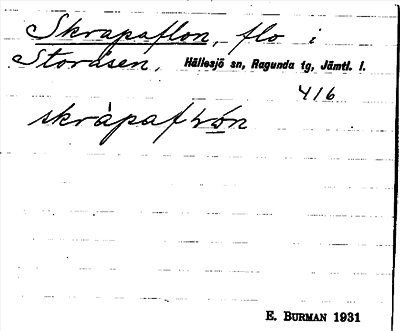 Skrapaflon, flo i
Storåsen, Hällesjö sn, Ragunda tg, Jämtl. l.
416
skràpafLön
E. BURMAN 1931